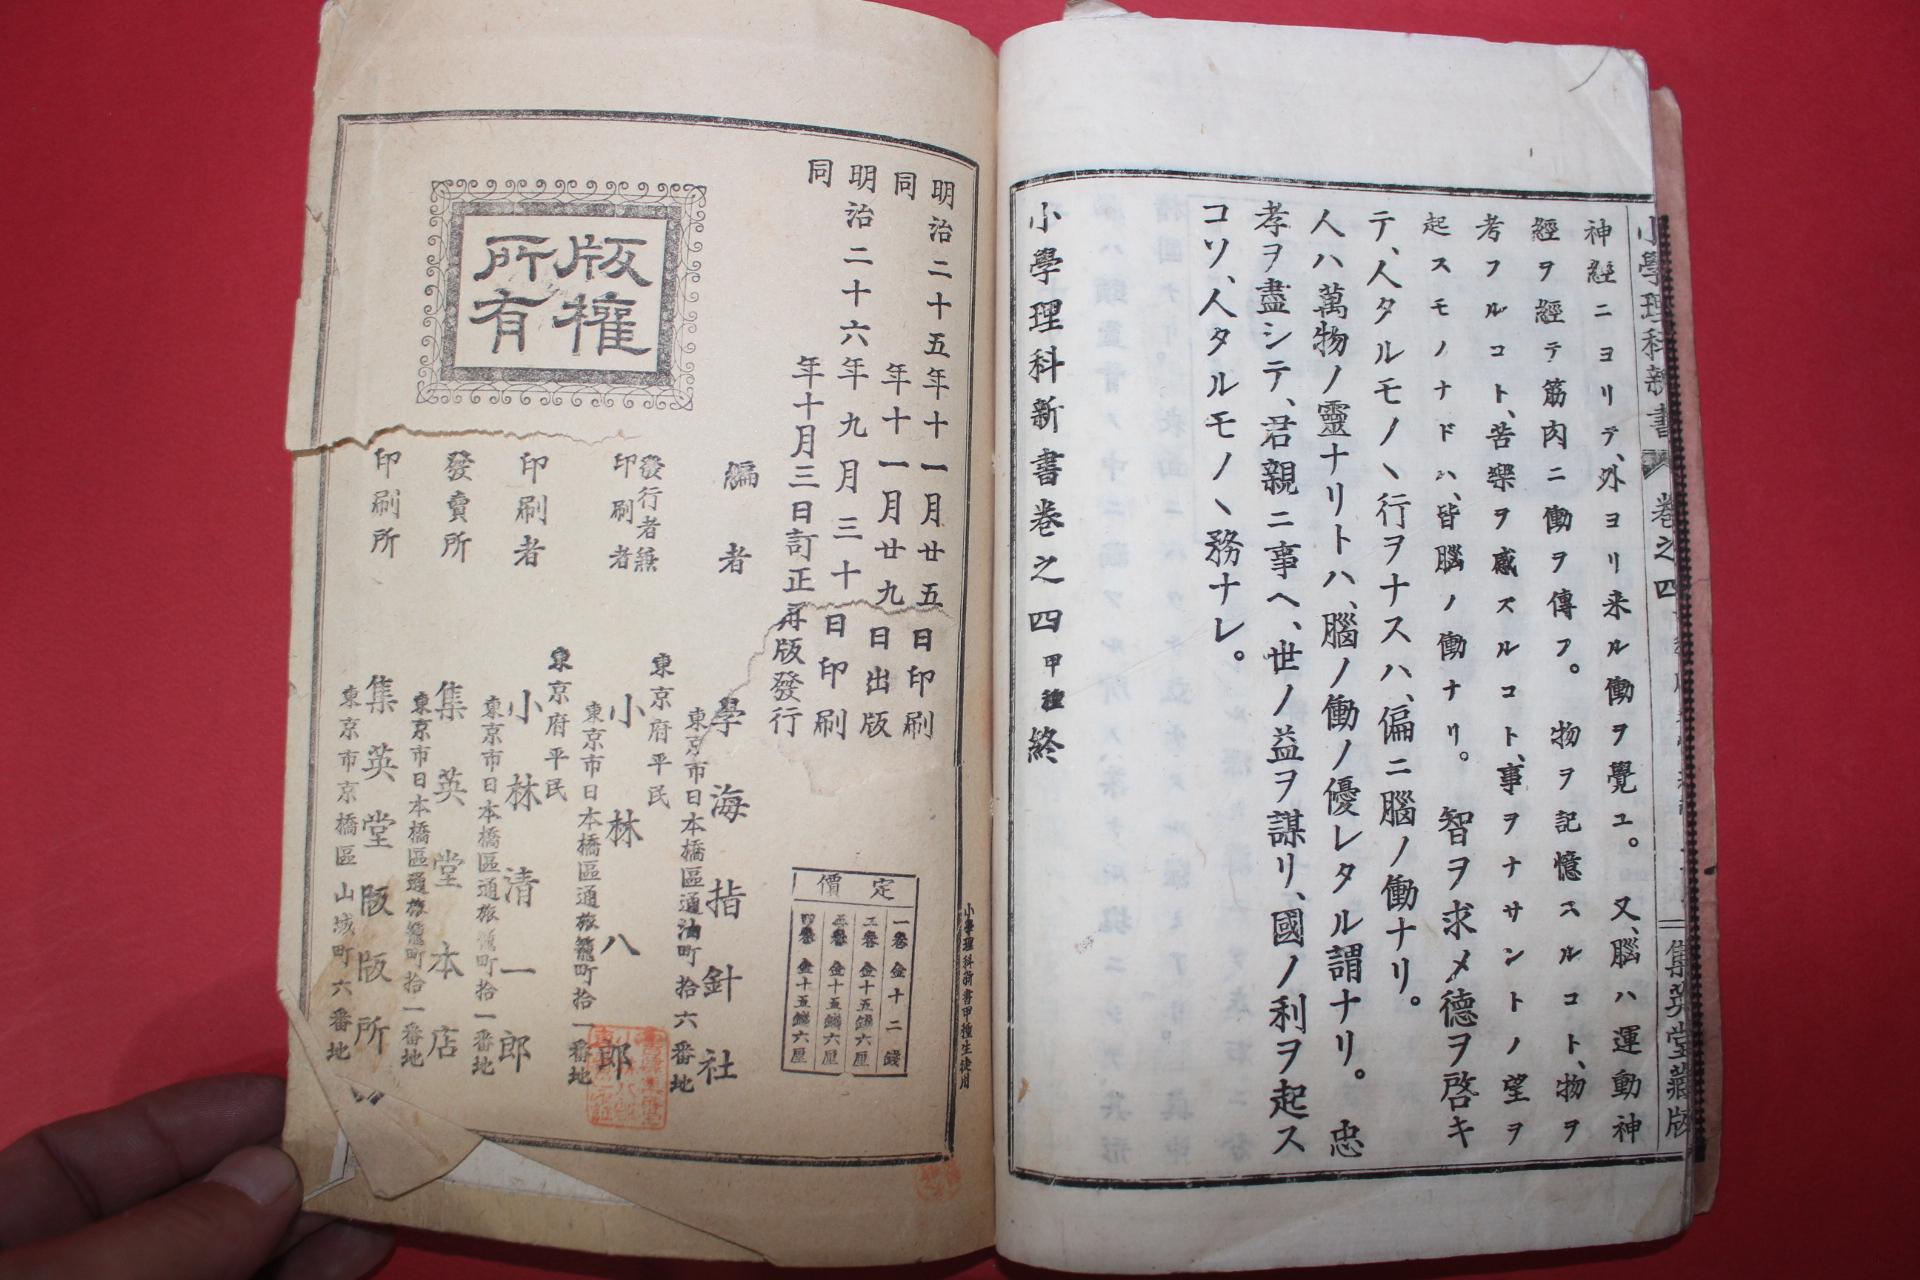 小學理科新書 卷之四 集英堂藏版
神經ニヨリテ、外ヨリ来ル働ヲ覺ユ。又、腦ハ運動神
經ヲ經テ筋肉ニ働ヲ傳フ。物ヲ記憶スルコト、物ヲ
考フルコト、苦樂ヲ感ズルコト、事ヲナサントノ望ヲ
起スモノナドハ、皆腦ノ働ナリ。智ヲ求メ德ヲ啓キ
テ、人タルモノヽ行ヲナスハ、偏ニ腦ノ働ナリ。
人ハ萬物ノ靈ナリトハ、腦ノ働ノ優レタル謂ナリ。忠
孝ヲ盡シテ、君親ニ事ヘ、世ノ益ヲ謀リ、國ノ利ヲ起ス
コソ、人タルモノヽ務ナレ。
小學理科新書卷之四 甲種 終
小學理科新書甲種生徒用
明治二十五年十一月廿五日印刷
同年十一月廿九日出版
明治二十六年九月三十日印刷
同年十月三日訂正再版發行
定價
一卷 金十二錢
二卷 金十五錢六厘
三卷 金十五錢六厘
四卷 金十五錢六厘
版權所有
編者 學海指針社
東京市日本橋區通油町拾六番地
東京府平民
發行者兼印刷者 小林八郎
東京市日本橋區通旅籠町拾一番地
東京府平民
印刷者 小林清一郎
東京市日本橋區通旅籠町拾一番地
發賣所 集英堂本店
東京市日本橋區通旅籠町拾一番地
印刷所 集英堂版版所
東京市京橋區山城町六番地